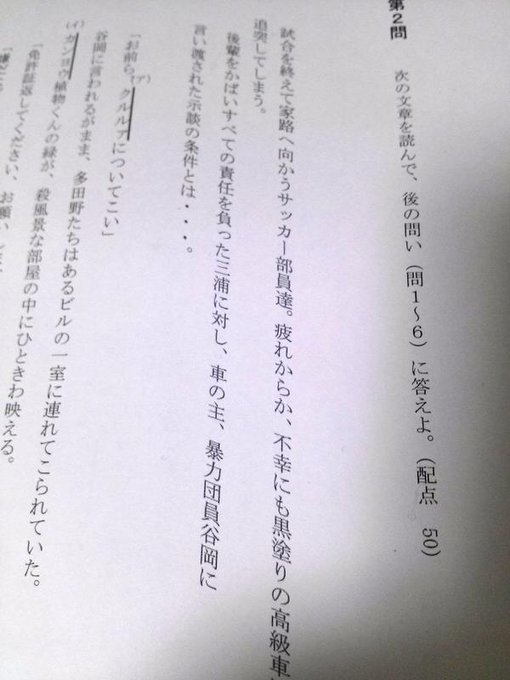 第２問
次の文章を読んで、後の問い（問１～６）に答えよ。（配点　50）
試合を終えて家路へ向かうサッカー部員達。疲れからか、不幸にも黒塗りの高級車
追突してしまう。
後輩をかばいすべての責任を負った三浦に対し、車の主、暴力団員谷岡に
言い渡された示談の条件とは・・・。
「お前ら、(ア)クルルァについてこい」
谷岡に言われるがまま、多田野たちはあるビルの一室に連れてこられていた。
(イ)カンヨウ植物くんの緑が、殺風景な部屋の中にひときわ映える。
「免許証返してください、お願いしま